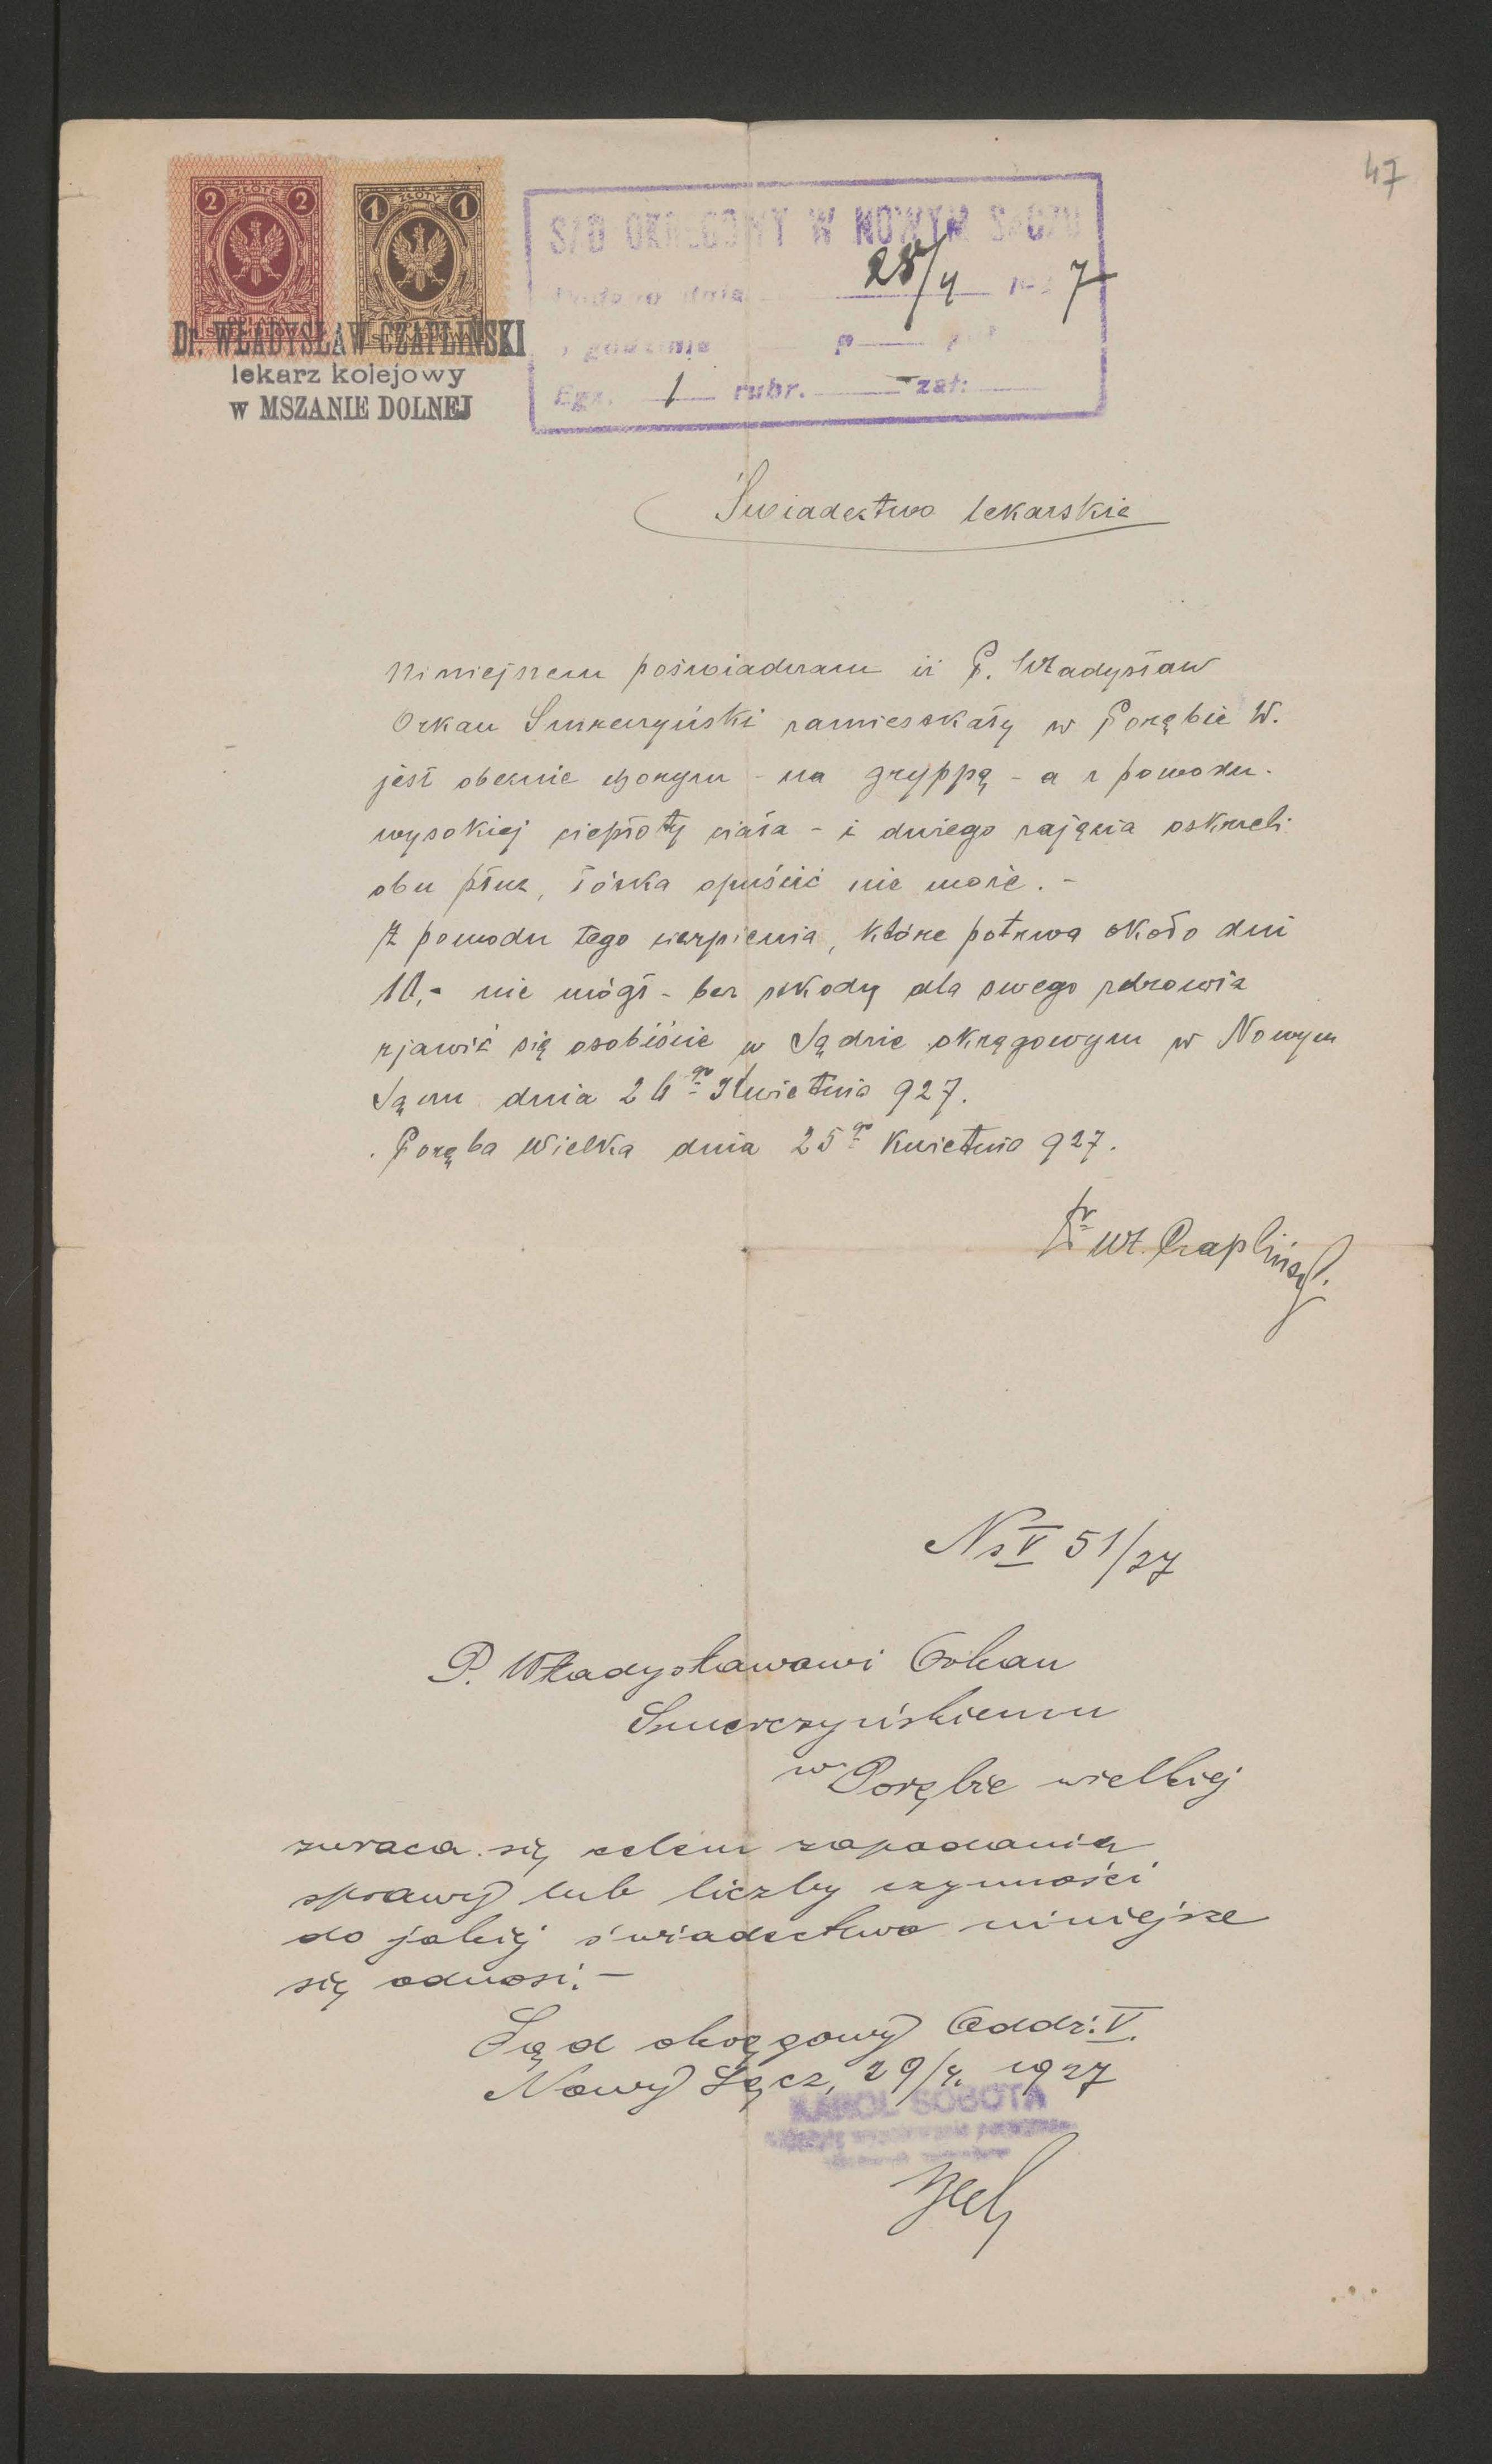 47
2 ZŁOTE 2
1 ZŁOTY 1
Dr. WŁADYSŁAW CZAPLIŃSKI
lekarz kolejowy
w MSZANIE DOLNEJ
SĄD OKRĘGOWY W NOWYM SĄCZU
Podano dnia 28/4 192 7
o godzinie p
Egz. 1 rubr. — zał:
Świadectwo lekarskie
Niniejszem poświadczam iż P. Władysław
Orkan Smreczyński zamieszkały w Porębie W.
jest obecnie chorym - na gryppę - a z powodu
wysokiej ciepłoty ciała - i dużego zajęcia oskrzeli
obu płuc, łóżka opuścić nie może. -
Z powodu tego cierpienia, które potrwa około dni
10,- nie mógł - bez szkody dla swego zdrowia
zjawić się osobiście w Sądzie okręgowym w Nowym
Sączu dnia 26go Kwietnia 927.
Poręba Wielka dnia 25go Kwietnia 927.
Dr Wł. Czapliński
Ns V 51/27
P. Władysławowi Orkan
Smerczyńskiemu
w Porębie wielkiej
zwraca się celem zapodania
sprawy lub liczby czynności
do jakiej świadectwo niniejsze
się odnosi. -
Sąd okręgowy Oddz: V.
Nowy Sącz, 29/4. 1927
KAROL SOBOTA